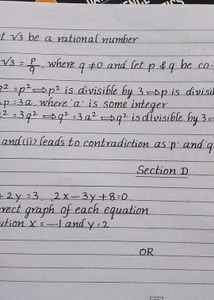 t √3 be a rational number
√3 = p/q, where q ≠ 0 and let p & q be co-
q² = p² ⇔ p² is divisible by 3 ⇔ p is divisi
p = 3a, where 'a' is some integer
² = 3q² ⇔ q² = 3a² ⇔ q² is divisible by 3 ⇔
and (ii) leads to contradiction as 'p' and q
Section D
+ 2y = 3, 2x - 3y + 8 = 0
rrect graph of each equation
ution x = -1 and y = 2
OR